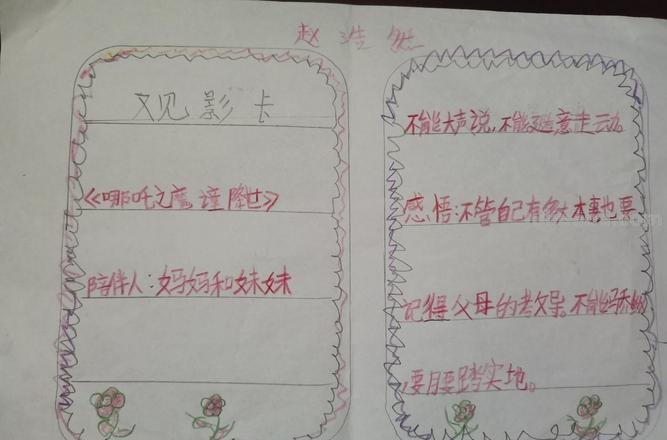 赵浩然
观影卡
《哪吒之魔童降世》
陪伴人：妈妈和妹妹
不能大声说，不能随意走动。
感悟：不管自己有多大本事也要
记得父母的教导。不能骄傲
要脚踏实地。